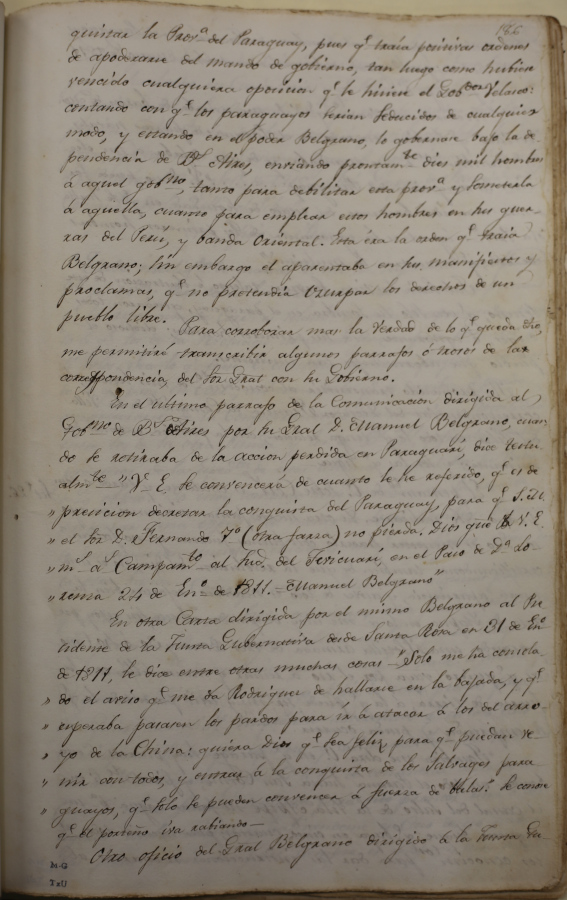 186
quistar la Prov.ª del Paraguay, pues q.e traía positivas ordenes
de apoderarse del mando de gobierno, tan luego como hubiese
vencido cualquiera oposicion q.e le hiciere el Gob.dor Velasco:
contando con q.e los paraguayos serian seducidos de cualquier
modo, y estando en el poder Belgrano, lo gobernase bajo la de
pendencia de B.s Aires, enviando prontam.te dies mil hombres
á aquel gob.no, tanto para debilitar esta prov.ª y someterla
á aquella, cuanto para emplear estos hombres en sus guer-
ras del Perú, y banda Oriental. Esta éra la orden q.e traía
Belgrano; sin embargo el aparentaba en sus manifiestos y
proclamas, q.e no pretendia Usurpar los derechos de un
pueblo libre.
Para corroborar mas la verdad de lo q.e queda dho,
me permitiré transcribir algunos parrafos ó trosos de las
correspondencia, del Sor. Gral con su Gobierno.
En el ultimo parrafo de la Comunicación dirigida al
Gob.no de B.s Aires por su Gral D. Manuel Belgrano, cuan
do se retiraba de la accion perdida en Paraguarí, dice testu
alm.te " V. E. se convencerá de cuanto le he referido, q.e es de
" precicion decretar la conquista del Paraguay, para q.e S. M.
" el Sor D. Fernando 7.º (otra farza) no pierda. Dios gũe á V. E.
" m.s a.s Campam.to al Sud. del Tevicuarí, en el Paso de D.ª Lo-
" renza 24 de En.º de 1811. = Manuel Belgrano"
En otra Carta dirigida por el mismo Belgrano al Pre
cidente de la Junta Gubernativa desde Santa Rosa en 31 de En.º
de 1811, le dice entre otras muchas cosas - "Solo me ha consola
" do el aviso q.e me da Rodriguez de hallarse en la bajada, y q.e
" esperaba pasasen los pardos para ir á atacar á los del arro-
" yo de la China: quiera Dios q.e sea feliz para q.e puedan ve-
" nir con todos, y entrar á la conquista de los Salvages para
" guayos, q.e solo se pueden convencer á fuerza de balas." Se conoce
q.e el porteño iva rabiando —
Otro oficio del Gral Belgrano dirigido á la Junta Gu-
M-G
TxU